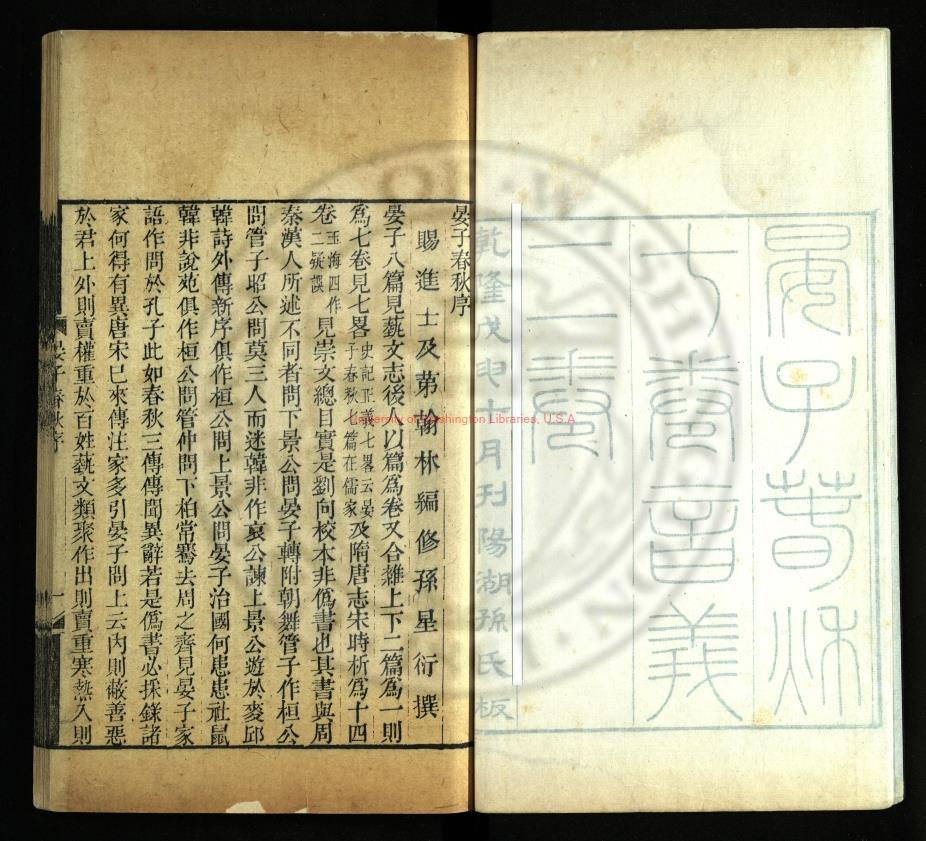 晏子春秋
七卷音義
二卷
乾隆戊申十月刊陽湖孫氏板
晏子春秋序
賜進士及苐翰林編修孫星衍撰
晏子八篇見藝文志後人以篇爲卷又合雜上下二篇爲一則
爲七卷見七畧史記正義七畧云晏子春秋七篇在儒家及隋唐志宋時析爲十四
卷玉海四作二疑誤見崇文總目實是劉向校本非僞書也其書與周
秦漢人所述不同者問下景公問晏子轉附朝舞管子作桓公
問管子昭公問莫三人而迷韓非作哀公諫上景公遊於麥邱
韓詩外傳新序俱作桓公問上景公問晏子治國何患患社鼠
韓非說苑俱作桓公問管仲問下柏常騫去周之齊見晏子家
語作問於孔子此如春秋三傳傳聞異辭若是僞書必採錄諸
家何得有異唐宋已來傳注家多引晏子問上云內則蔽善惡
於君上外則賣權重於百姓藝文類聚作出則賣重寒熱入則
晏子春秋序
一
University of Washington Libraries, U.S.A